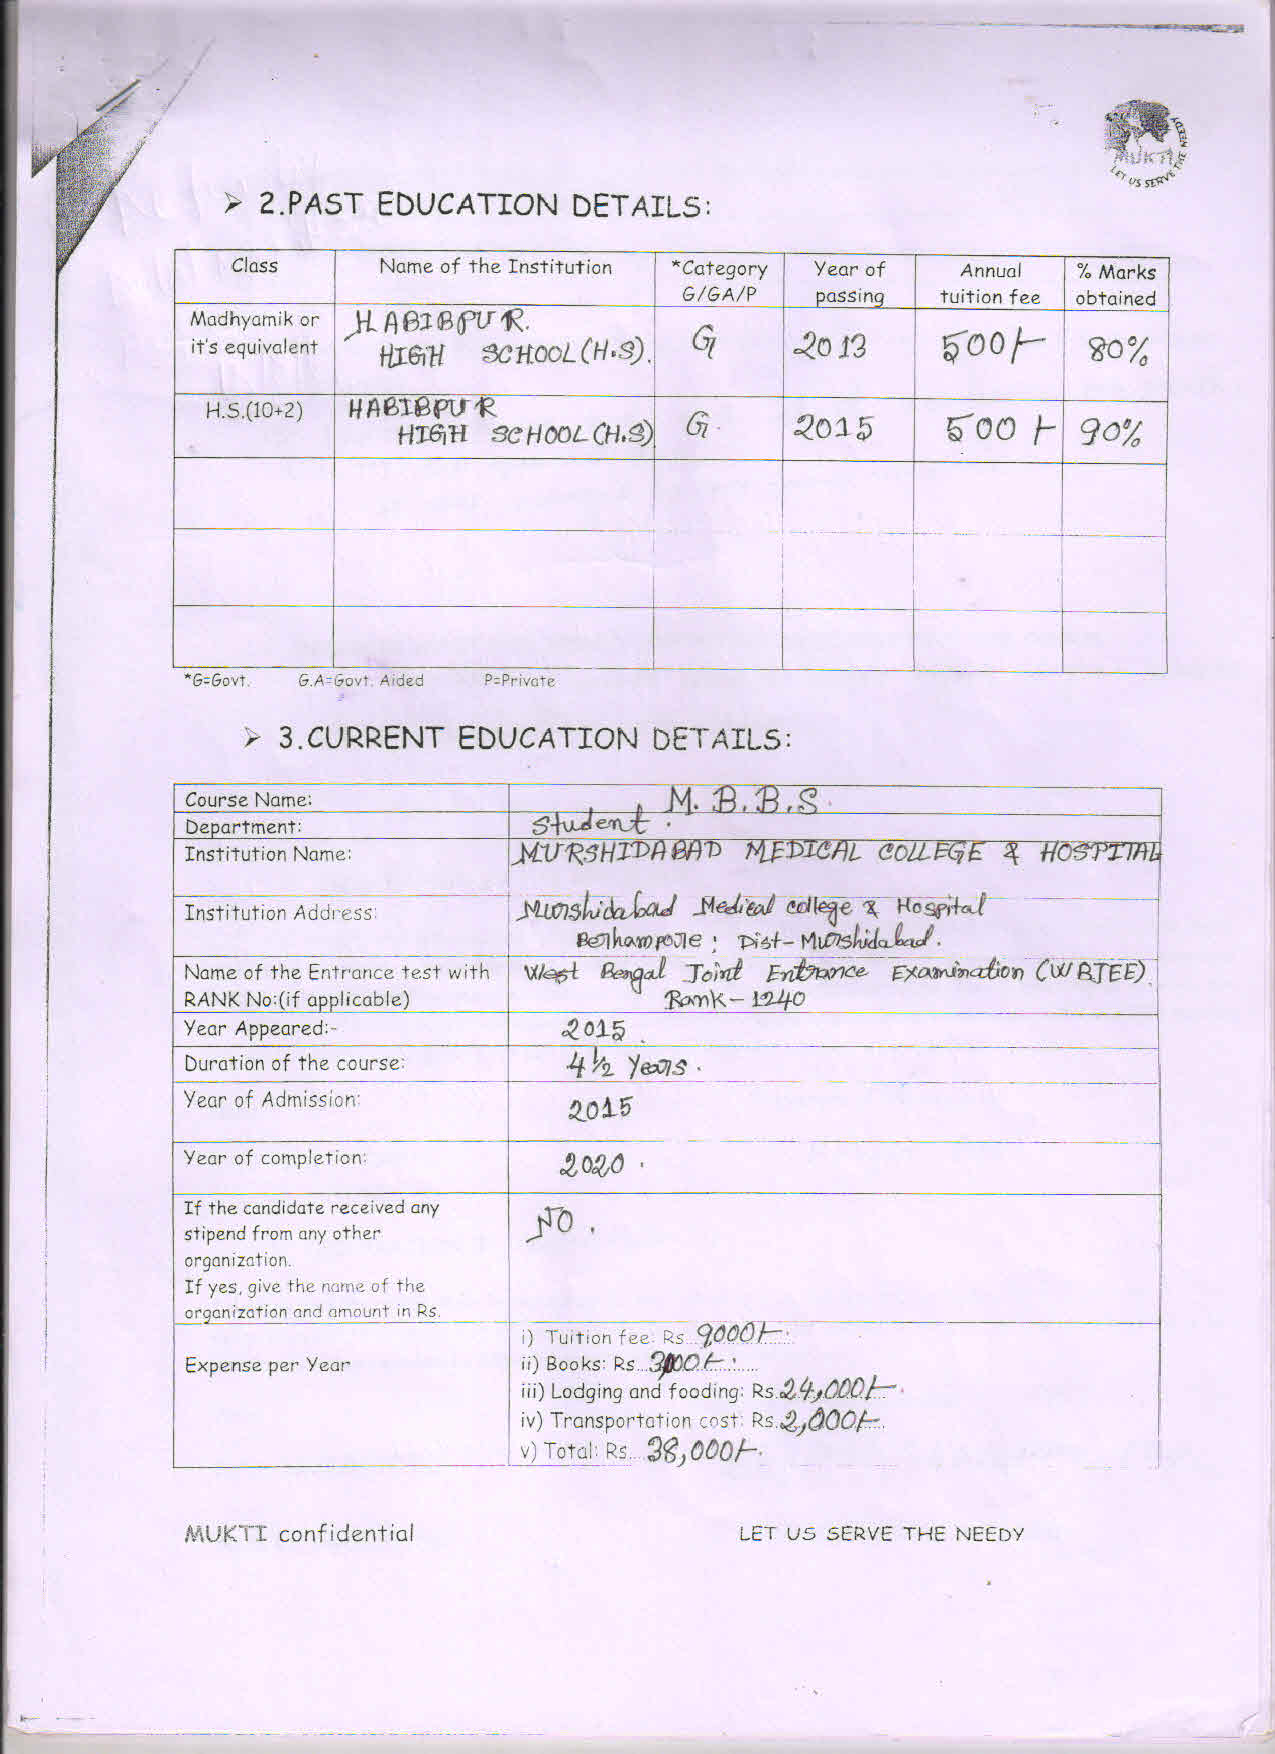 MUKTI
LET US SERVE THE NEEDY
➢ 2.PAST EDUCATION DETAILS:
Class Name of the Institution *Category G/GA/P Year of passing Annual tuition fee % Marks obtained
Madhyamik or it's equivalent HABIBPUR. HIGH SCHOOL (H.S). G 2013 500/- 80%
H.S.(10+2) HABIBPUR HIGH SCHOOL (H.S) G. 2015 500/- 90%
*G=Govt. G.A=Govt. Aided P=Private
➢ 3.CURRENT EDUCATION DETAILS:
Course Name: M.B.B.S.
Department: Student.
Institution Name: MURSHIDABAD MEDICAL COLLEGE & HOSPITAL
Institution Address: Murshidabad Medical college & Hospital
Berhampore; Dist-Murshidabad.
Name of the Entrance test with West Bengal Joint Entrance Examination (WBJEE).
RANK No:(if applicable) Rank-1240
Year Appeared:- 2015.
Duration of the course: 4½ Years.
Year of Admission: 2015
Year of completion: 2020.
If the candidate received any NO.
stipend from any other
organization.
If yes, give the name of the
organization and amount in Rs.
i) Tuition fee: Rs...9000/-
Expense per Year ii) Books: Rs...3000/-
iii) Lodging and fooding: Rs.24,000/-.
iv) Transportation cost: Rs.2,000/-
v) Total: Rs....38,000/-.
MUKTI confidential LET US SERVE THE NEEDY